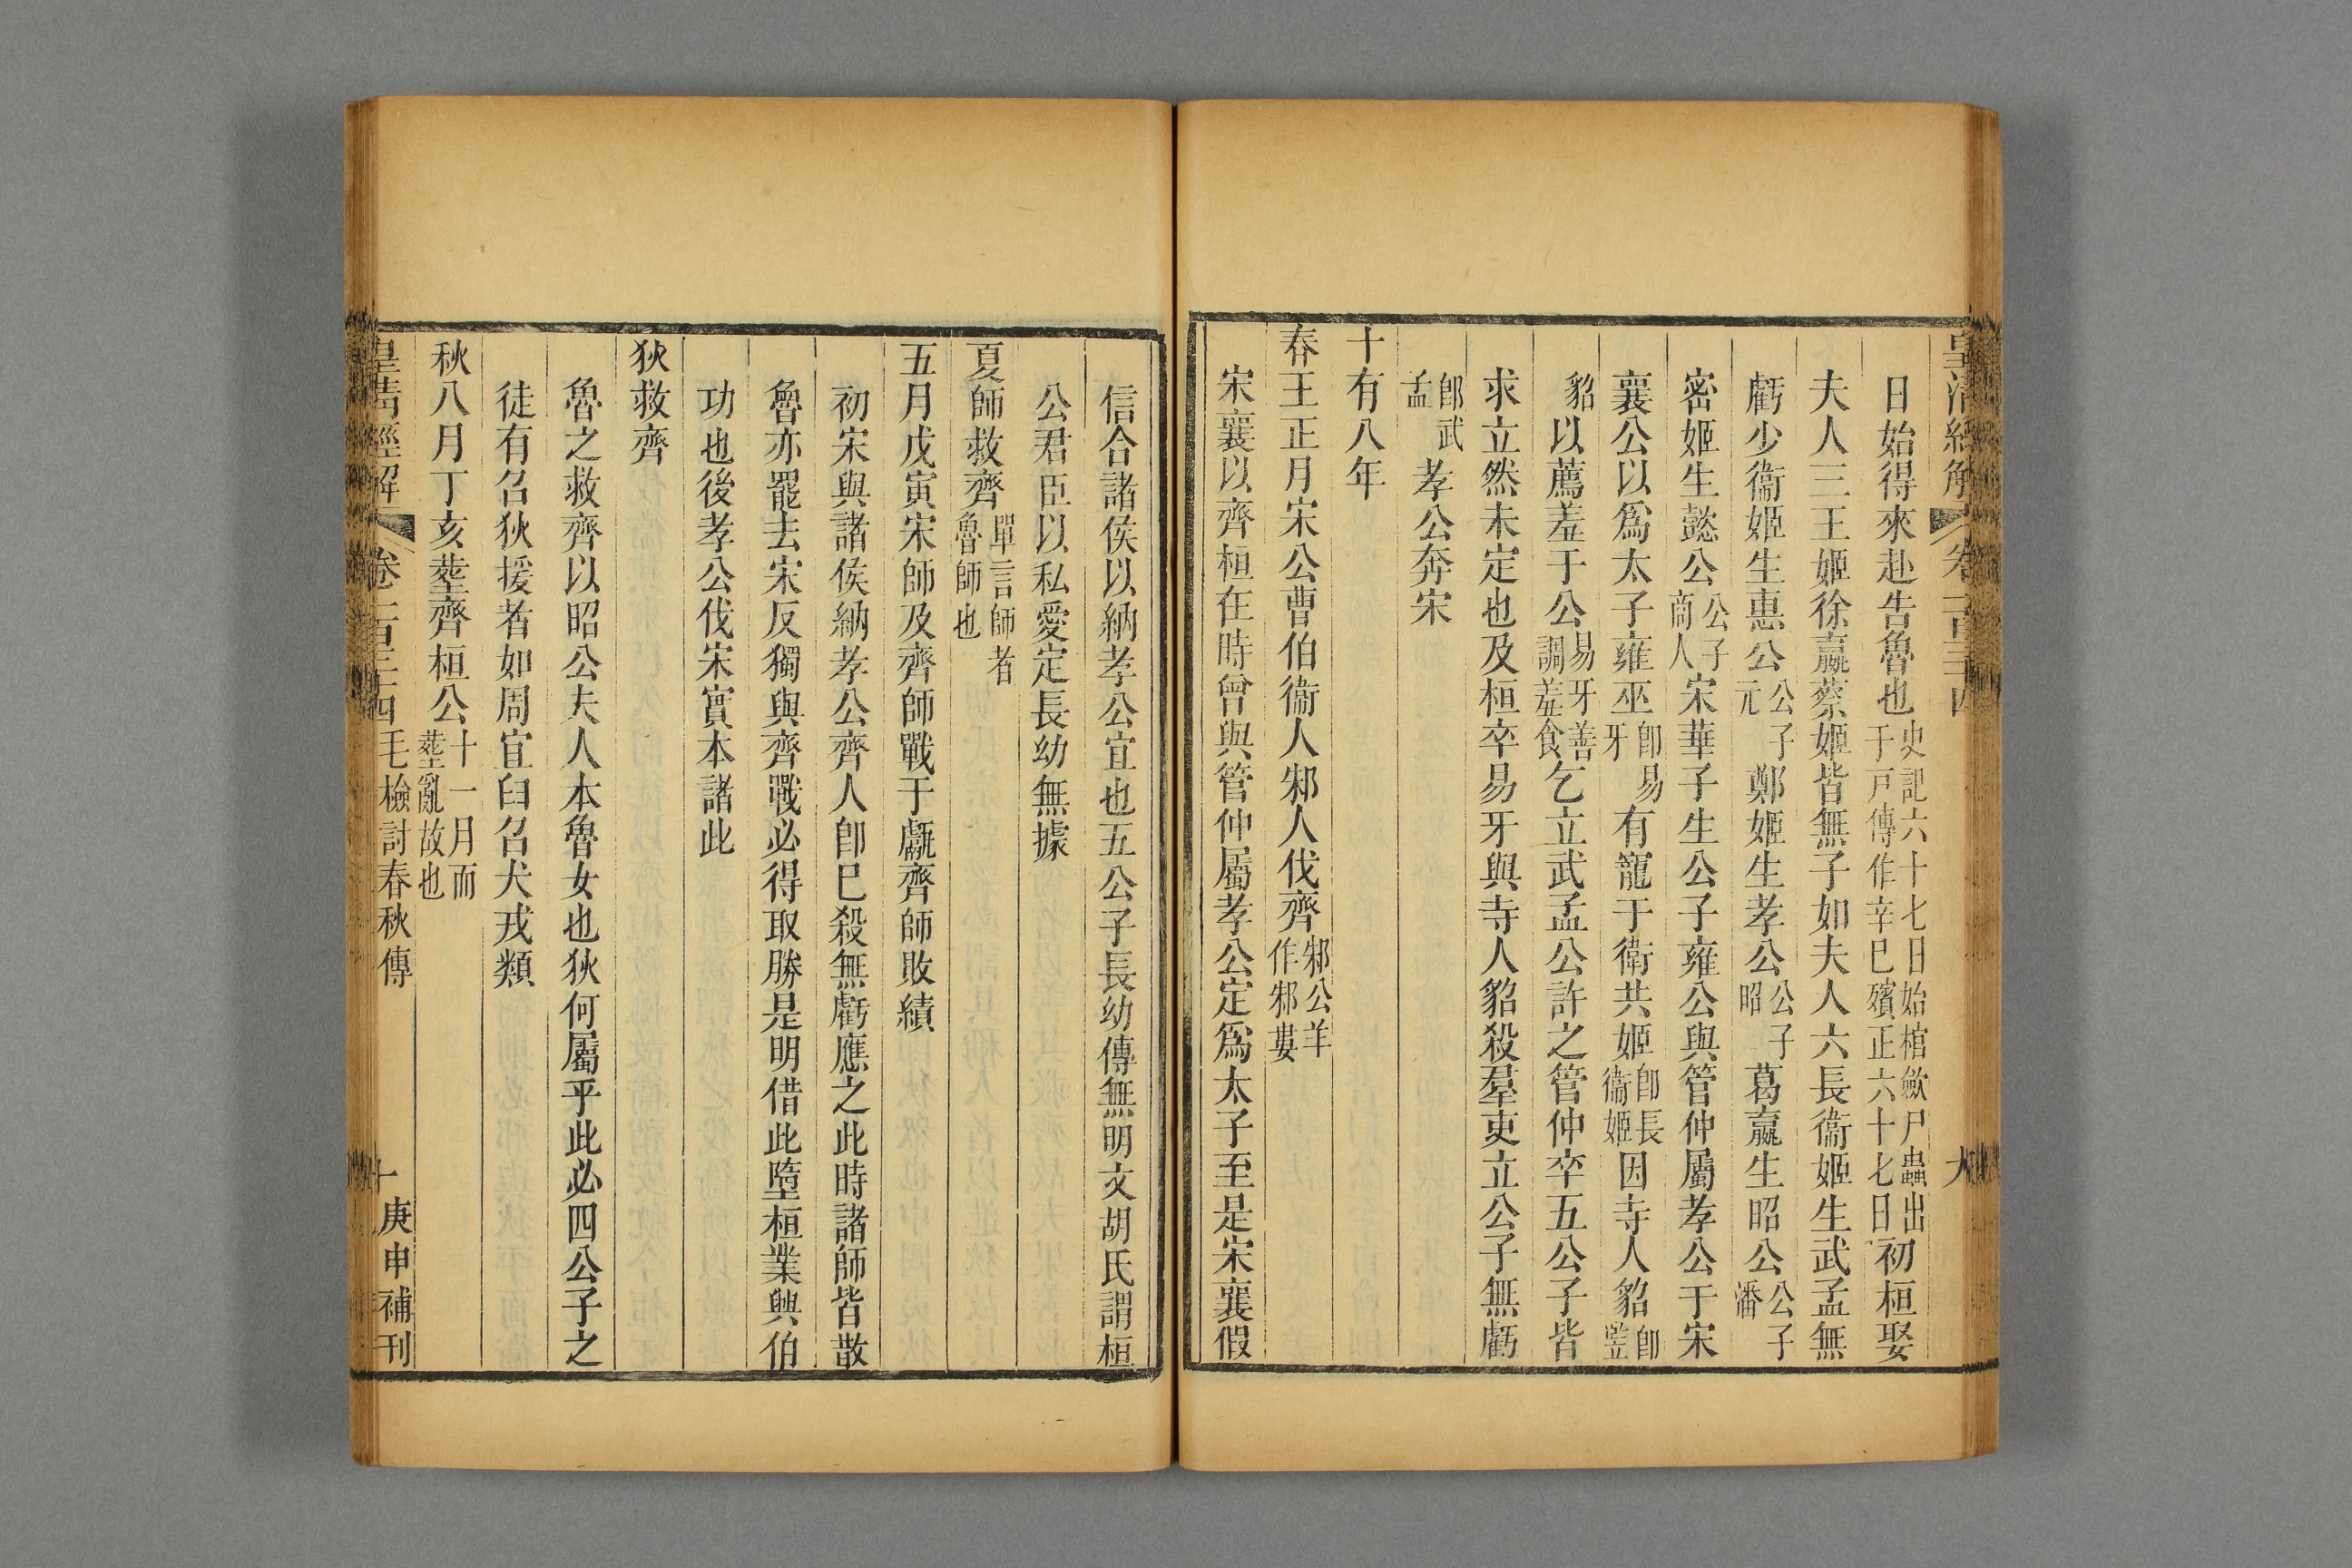 皇清經解 卷一百三十四
日始得來赴告魯也史記六十七日始棺斂尸蟲出于戸傳作辛巳殯正六十七日初桓娶
夫人三王姬徐嬴蔡姬皆無子如夫人六長衞姬生武孟無
虧少衞姬生惠公公子元鄭姬生孝公公子昭葛嬴生昭公公子潘
密姬生懿公公子商人宋華子生公子雍公與管仲屬孝公于宋
襄公以爲太子雍巫卽易牙有寵于衛共姬卽長衞姬因寺人貂卽豎
貂以薦羞于公易牙善調羞食乞立武孟公許之管仲卒五公子皆
求立然未定也及桓卒易牙與寺人貂殺羣吏立公子無虧
卽武孟孝公奔宋
十有八年
春王正月宋公曹伯衞人邾人伐齊邾公羊作邾婁
宋襄以齊桓在時曾與管仲屬孝公定爲太子至是宋襄假
信合諸侯以納孝公宜也五公子長幼傳無明文胡氏謂桓
公君臣以私愛定長幼無據
夏師救齊單言師者魯師也
五月戊寅宋師及齊師戰于甗齊師敗績
初宋與諸侯納孝公齊人卽巳殺無虧應之此時諸師皆散
魯亦罷去宋反獨與齊戰必得取勝是明借此墮桓業興伯
功也後孝公伐宋實本諸此
狄救齊
魯之救齊以昭公夫人本魯女也狄何屬乎此必四公子之
徒有召狄援者如周宜臼召犬戎類
秋八月丁亥塟齊桓公十一月而塟亂故也
皇清經解 卷一百三十四 毛檢討春秋傳 十 庚申補刊